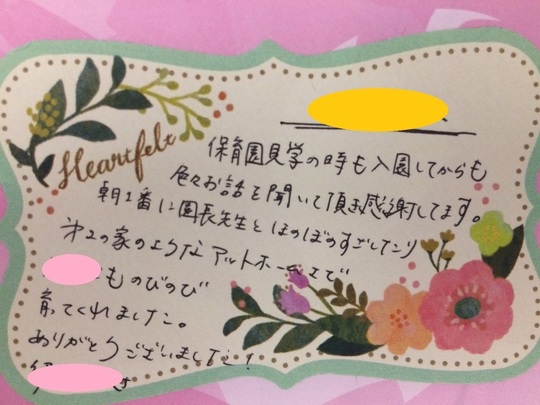 Heartfelt
保育園見学の時も入園してからも
色々お話を聞いて頂き感謝してます。
朝1番に園長先生とほのぼのすごしたり
第2の家のようなアットホームさで
ものびのび
育てくれました。
ありがとうございました!